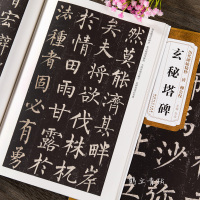 然莫能濟其畔岸
矣夫將欲伐株杌
於情田雨甘露於
法種者固必有勇
玄秘塔碑